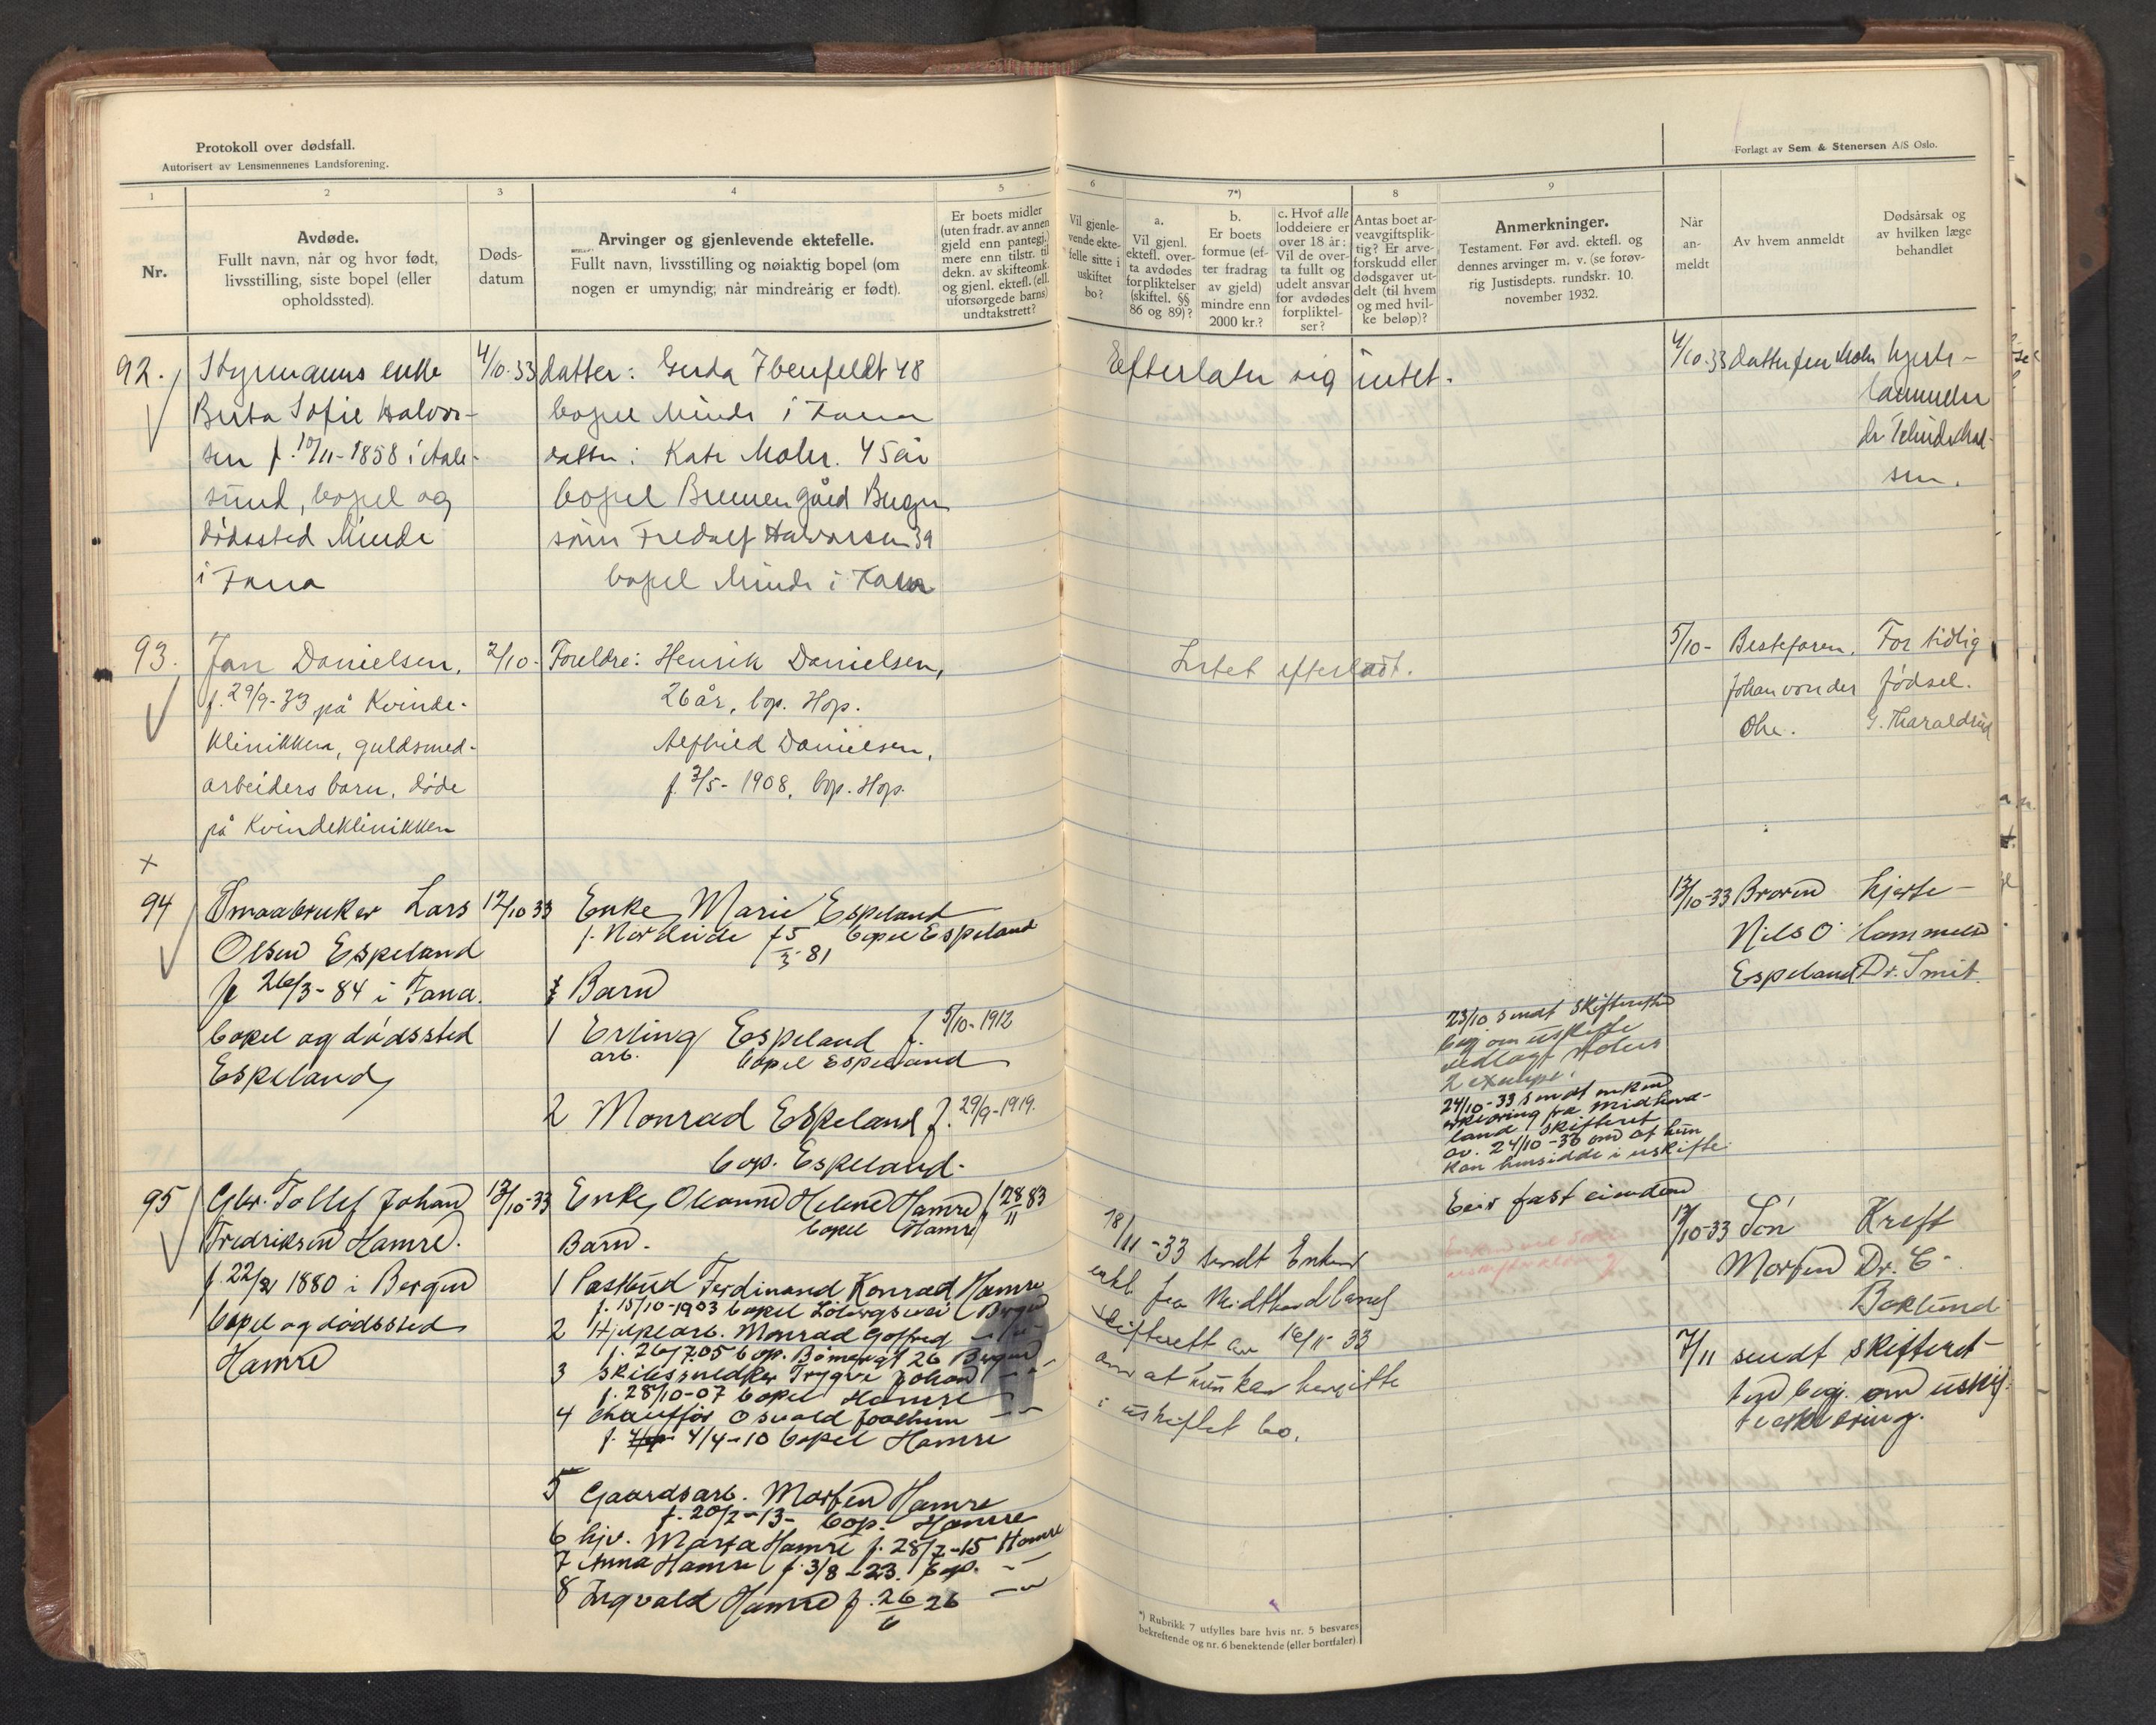 Protokoll over dødsfall.
Autorisert av Lensmennenes Landsforening.
Forlagt av Sem & Stenersen A/S Oslo.
1
2
3
4
5
6
7*)
8
9
Nr.
Avdøde.
Fullt navn, når og hvor født,
livsstilling, siste bopel (eller
opholdssted).
Døds-
datum
Arvinger og gjenlevende ektefelle.
Fullt navn, livsstilling og nøiaktig bopel (om
nogen er umyndig; når mindreårig er født).
Er boets midler
(uten fradr. av annen
gjeld enn pantegj.)
mere enn tilstr. til
dekn. av skifteomk.
og gjenl. ektef. (ell.
uforsørgede barns)
undtakstrett?
Vil gjenle-
vende ekte-
felle sitte i
uskiftet
bo?
a.
Vil gjenl.
ektefl. over-
ta avdødes
forpliktelser
(skiftel. §§
86 og 89)?
b.
Er boets
formue (ef-
ter fradrag
av gjeld)
mindre enn
2000 kr.?
c. Hvor alle
loddeiere er
over 18 år:
Vil de over-
ta fullt og
udelt ansvar
for avdødes
forpliktel-
ser?
Antas boet ar-
veavgiftsplik-
tig? Er arve-
forskudd eller
dødsgaver ut-
delt (til hvem
og med hvil-
ke beløp)?
Anmerkninger.
Testament. Før avd. ektefl. og
dennes arvinger m. v. (se forøv-
rig Justisdepts. rundskr. 10.
november 1932.
Når
an-
meldt
Av hvem anmeldt
Dødsårsak og
av hvilken læge
behandlet
92.
Styrmanns enke
Berta Sofie Halvor-
sen f. 10/11-1858 i Aale-
sund, bopel og
dødssted Minde
i Fana
4/10.33
datter: Gerda Ibenfeldt 48
bopel Minde i Fana
datter: Kate Mohr. 45 år
bopel Bremengård Bergen
sønn Fredolf Halvorsen 39
bopel Minde i Fana
Efterlater sig intet.
4/10.33
Datter fru Mohr
hjerte-
lammelse
93.
Jan Danielsen,
f. 29/9-33 på Kvinde-
klinikken, guldsmed-
arbeiders barn, døde
på Kvindeklinikken
2/10-
Foreldre: Henrik Danielsen,
26 år, bop. Hop.
Alfhild Danielsen,
f. 3/5-1908, bop. Hop.
Intet efterladt.
5/10-
Bestefaren,
Johan von der
Ohe.
For tidlig
fødsel.
G. Tharaldsen
x
94
Smaabruker Lars
Olsen Espeland
f 26/3-84 i Fana.
bopel og dødssted
Espeland
12/10 33
Enke, Marie Espeland
f. Nordeide f 5/3-81 bopel Espeland
Barn
1 Erling Espeland f. 5/10-1912
arb. bopel Espeland
2 Monrad Espeland f. 29/9-1919.
bop. Espeland.
23/10 sendt skifteretten
beg om uskifte
vedlagt
2 exempl.
24/10-33 sendt enken
erklæring fra Midthord-
land skifterett
av. 24/10-33 om at hun
kan hensidde i uskifte.
13/10-33
Broren
Nils O
Espeland
hjerte-
lammelse
Dr. Smit.
95
Gbr. Tollef Johan
Fredriksen Hamre.
1880 i Bergen
bopel og dødssted
Hamre
13/10-33
Enke, Oleanne Helene Hamre f 28/11 83
bopel Hamre
Barn.
1 Postbud Ferdinand Konrad Hamre
f. 15/10-1903 bopel Bergen
2 Hjelpearb. Monrad Gotfred
f. 26/7.05 bop. 26 Bergen
3 Trygve Johan
f. 28/10-07 bopel Hamre
4 Chauffør Osvald Joachim
f. 4/4-10 bopel Hamre
5 Gaardsarb. Morten Hamre
f. 20/2-13- bop. Hamre
6 hjv. Marta Hamre f. 28/2-15 Hamre
7 Anna Hamre f. 3/8-23. bop.
8 Ingvald Hamre f. 26/6 26
18/11-33 sendt Enken
erkl. fra Midthordland
skifterett av 16/11 33
om at hun kan hensitte
i uskiftet bo.
Eier fast eiendom
13/10-33
Søn
Morten
Kreft
Dr. E
Boklund
7/11 sendt skifteret-
ten begj. om uskif-
teerklæring.
*) Rubrikk 7 utfylles bare hvis nr. 5 besvares
bekreftende og nr. 6 benektende (eller bortfaler)